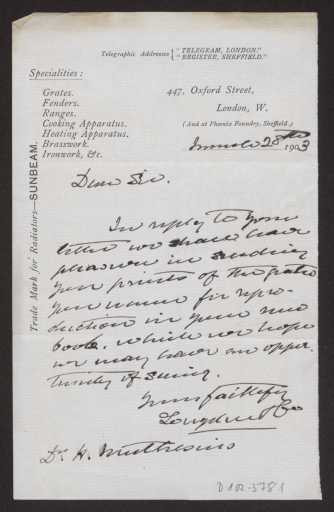 Telegraphic Addresses { "TELEGRAM, LONDON."
"REGISTER, SHEFFIELD."
Specialities:
Grates.
Fenders.
Ranges.
Cooking Apparatus.
Heating Apparatus.
Brasswork.
Ironwork, &c.
Trade Mark for Radiators—SUNBEAM.
447, Oxford Street,
London, W.
(And at Phœnix Foundry, Sheffield.)
28th 1903
Dear Sir.
In reply to your
letter we shall have
pleasure in sending
you prints of the grates
you name for repro-
duction in your new
book. which we hope
we may have an oppor-
tunity of seeing.
Yours faithfy
Longden & Co
Dr. H. Muthesius
D 102-5781